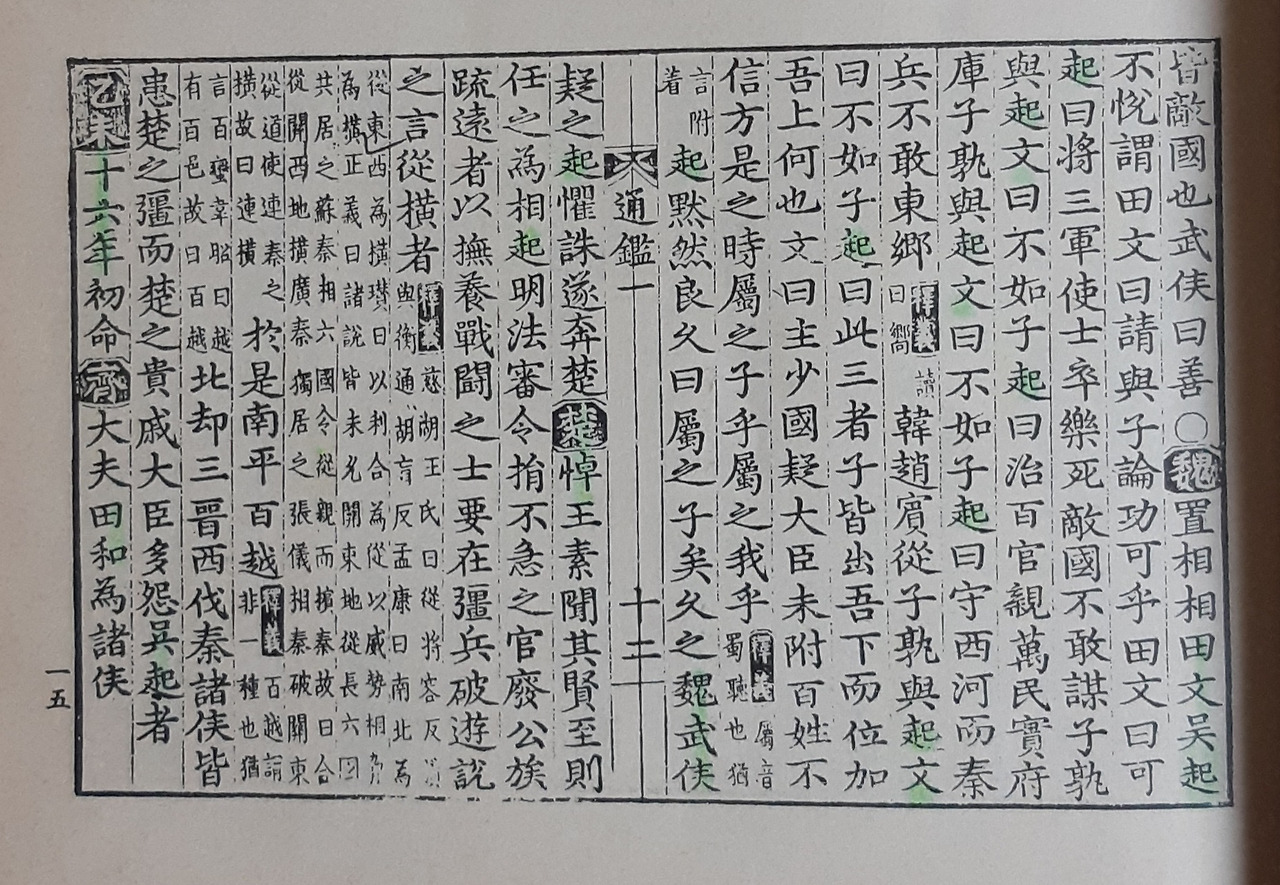 皆敵國也武侯曰善○魏置相相田文吴起
不悅謂田文曰請與子論功可乎田文曰可
起曰將三軍使士卒樂死敵國不敢謀子孰
與起文曰不如子起曰治百官親萬民實府
庫子孰與起文曰不如子起曰守西河而秦
兵不敢東鄉釋義讀曰嚮韓趙賓從子孰與起文
曰不如子起曰此三者子皆出吾下而位加
吾上何也文曰主少國疑大臣未附百姓不
信方是之時屬之子乎屬之我乎釋義屬音蜀聽也猶
言附着起默然良久曰屬之子矣久之魏武侯
通鑑一 十二
疑之起懼誅遂奔楚楚悼王素聞其賢至則
任之為相起明法審令捐不急之官廢公族
疏遠者以撫養戰鬪之士要在彊兵破遊說
之言從橫者釋義慈湖王氏曰從將容反與衡通胡盲反孟康曰南北為
從東西為橫瓚曰以利合為從以威勢相為橫正義曰諸說皆未允關東地從長六國
共居之蘇秦相六國令從親而擯秦故曰合從關西地橫廣秦獨居之張儀相秦破關東
從道使連秦之橫故曰連橫於是南平百越釋義百越謂非一種也猶
言百蠻韋昭曰越有百邑故曰百越北却三晉西伐秦諸侯皆
患楚之彊而楚之貴戚大臣多怨吴起者
乙未十六年初命齊大夫田和為諸侯
一五